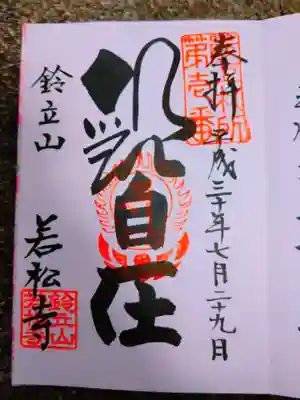 奉拝
平成三十年七月二十九日
自在
鈴立山
若松寺
第壱番
鈴立山